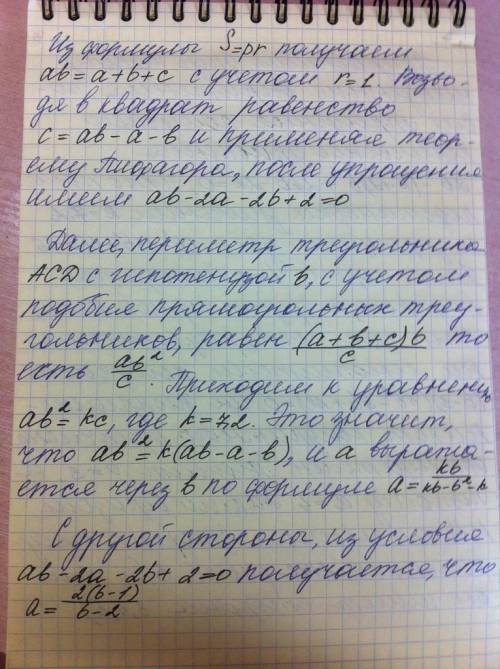 Из формулы S=pr получаем
ab=a+b+c с учетом r=1. Возво-
дя в квадрат равенство
c=ab-a-b и применяя теор-
ему Пифагора, после упрощения
имеем ab-2a-2b+2=0
Далее, периметр треугольника
ACD с гипотенузой b, с учетом
подобия прямоугольных треу-
гольников, равен (a+b+c)b/c то
есть ab²/c. Приходим к уравнению
ab²=kc, где k=7,2. Это значит,
что ab²=k(ab-a-b), и a выража-
ется через b по формуле a=kb/(kb-b²-k)
С другой стороны, из условия
ab-2a-2b+2=0 получается, что
a=2(b-1)/(b-2)